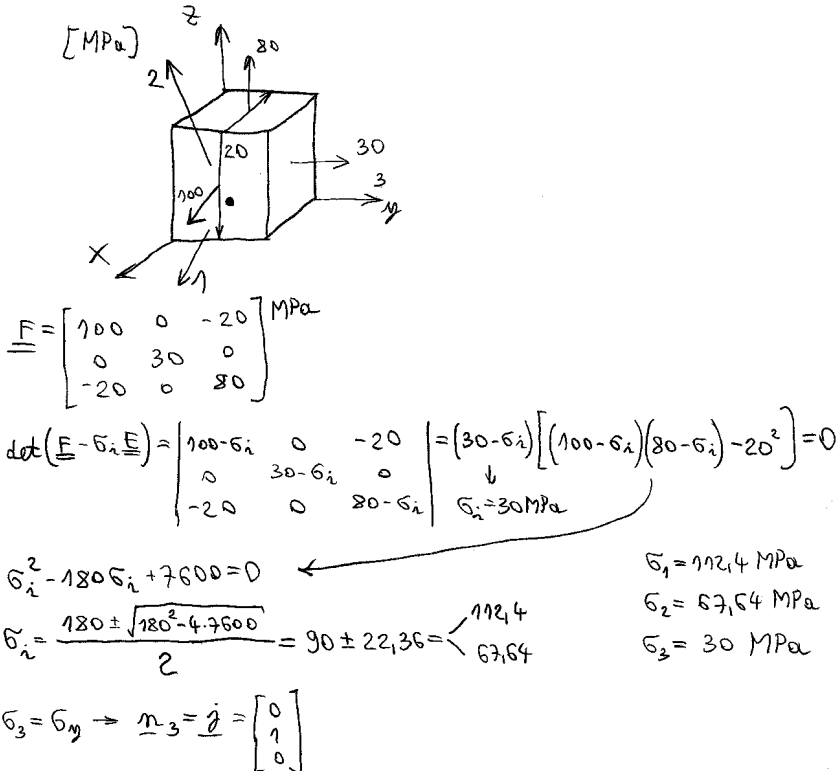 z
[MPa]
80
2
20
30
100
3
y
X
1
F = [100 0 -20
0 30 0
-20 0 80] MPa
det(F - σi E) = |100-σi 0 -20
0 30-σi 0
-20 0 80-σi| = (30-σi)[(100-σi)(80-σi)-20²] = 0
↓
σi = 30 MPa
σi² - 180σi + 7600 = 0
σi = (180 ± √(180² - 4·7600)) / 2 = 90 ± 22,36 = < 112,4
67,64
σ1 = 112,4 MPa
σ2 = 67,64 MPa
σ3 = 30 MPa
σ3 = σy → n3 = j = [0
1
0]